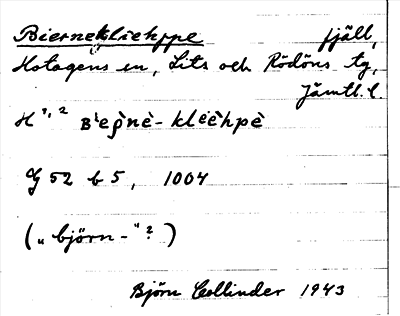 Biernekliehppe fjäll,
Hotagens sn, Lits och Rödöns tg,
Jämtl. l.
H 1, 2 Bi̯eρ̀nè- kli̯èèhpè
G 52 b 5, 1004
(„björn-"? )
Björn Collinder 1943